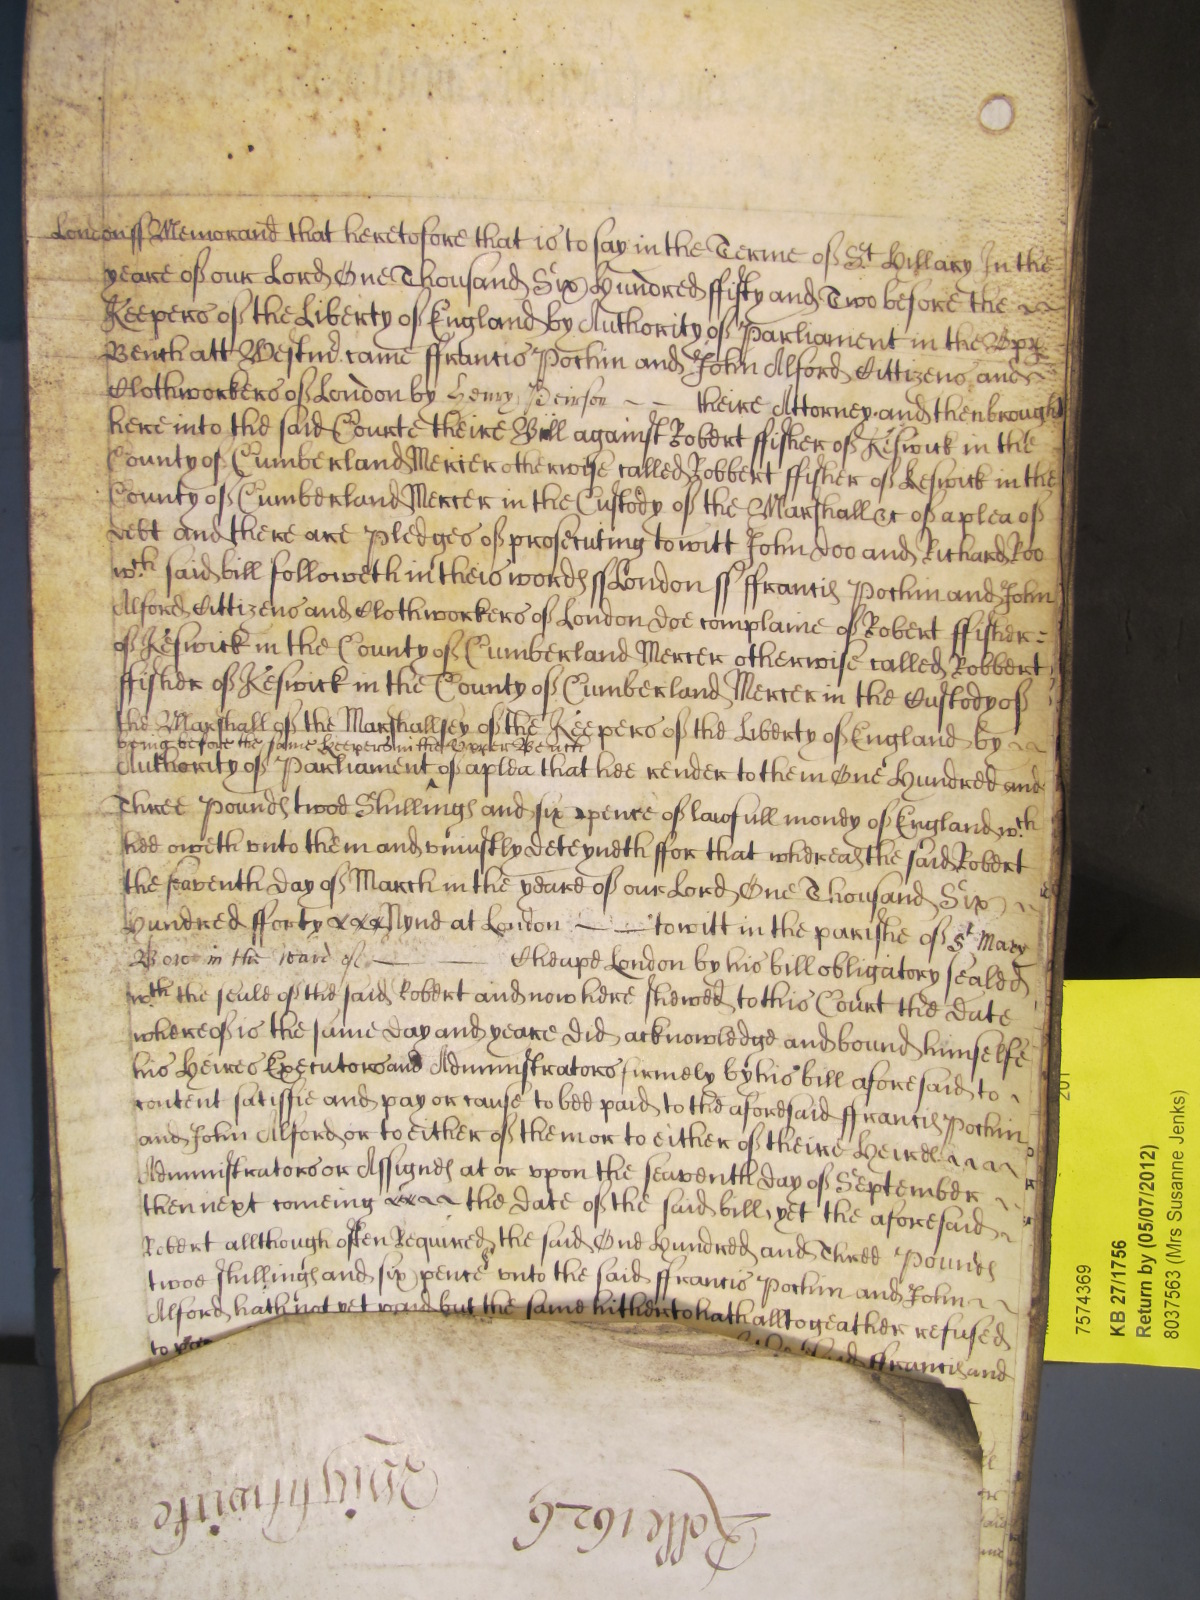 London ss Memorand that heretofore that is to say in the Terme of St Hillary In the
yeare of our Lord One Thousand Six Hundred ffifty and Two before the
Keepers of the Liberty of England by Authority of Parliament in the Vpp
Bench att Westmr. came ffrancis Pochin and John Alford Cittizens and
Clothworkers of London by Henry Peirson theire Attorney and then brought
here into the said Courte theire Bill against Robert ffisher of Keswick in the
County of Cumberland Mercer otherwise called Robbert ffisher of Keswick in the
County of Cumberland Mercer in the Custody of the Marshall &c of a plea of
debt and there are pledges of prosecuting to witt John Doo and Richard Roo
wch said bill followeth in theis words ss London ss ffrancis Pochin and John
Alford Cittizens and Clothworkers of London doe complaine of Robert ffisher =
of Keswick in the County of Cumberland Mercer otherwise called Robbert
ffisher of Keswick in the County of Cumberland Mercer in the Custody of
the Marshall of the Marshallsey of the Keepers of the Liberty of England by
being before the same Keepers in the Vpper Bench
Authority of Parliament ^ of a plea that hee render to them One Hundred and
Three pounds twoe Shillings and six pence of lawfull money of England wch
hee oweth vnto them and vniustly deteyneth ffor that whereas the said Robert
the seaventh day of March in the yeare of our Lord One Thousand Six
Hundred fforty xxx Nyne at London to witt in the parishe of St Mary
Bow in the ward of Cheape London by his bill obligatory sealed
wth the seale of the said Robert and now here shewed to this Court the date
whereof is the same day and yeare did acknowledge and bound himselfe
his Heires Executors and Administrators firmely by his bill aforesaid to
content satisfie and pay or cause to bee paid to the aforesaid ffrancis Pochin
and John Alford or to either of them or to either of theire Heires
Administrators or Assignes at or vpon the seaventh day of September
then next comeing the date of the said bill yet the aforesaid
Robert allthough often Required the said One Hundred and Three Pounds
twoe shillings and six pence vnto the said ffrancis Pochin and John
Alford hath not yet paid but the same hitherto hath alltogeather refused
to pay ffrancis and
Rolle 1626
Wightwicke
7574369
KB 27/1756
Return by (05/07/2012)
8037563 (Mrs Susanne Jenks)